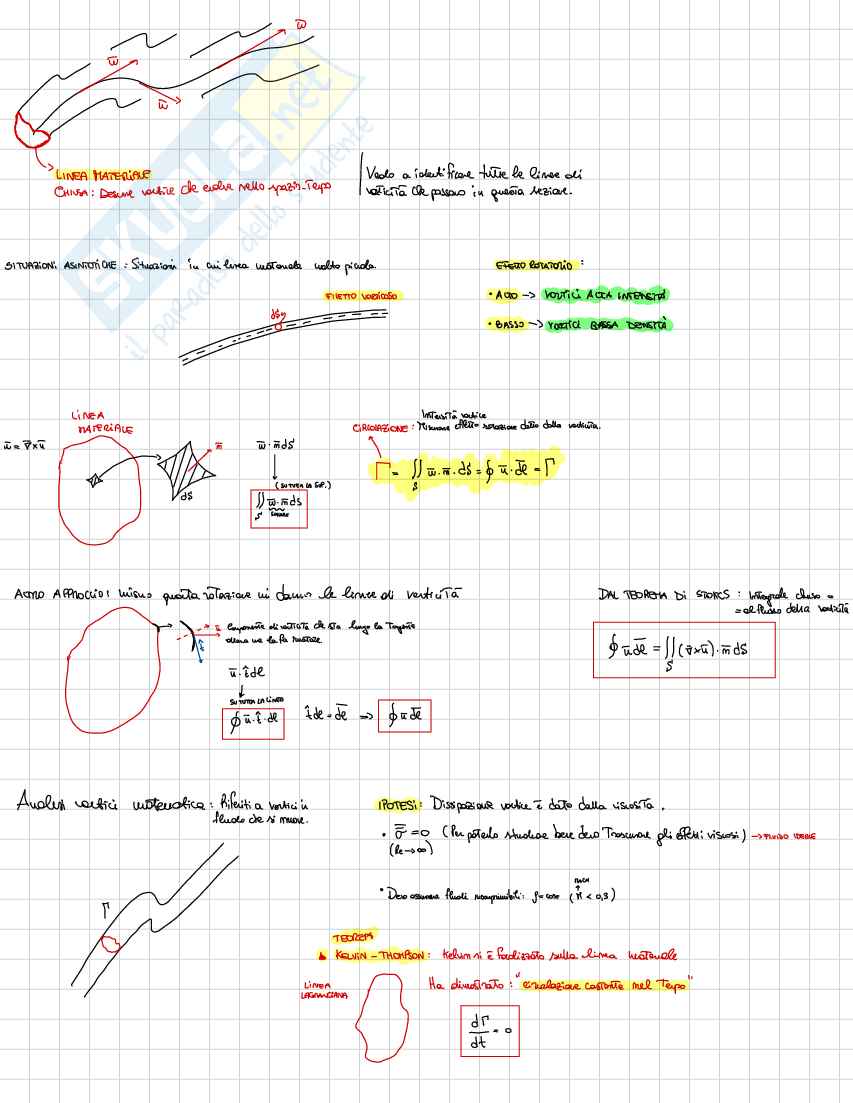 w̄
w̄
w̄
SKUOLA.net
il paradiso dello studente
LINEA MATERIALE
CHIUSA: Descrive vortice che evolve nello spazio-Tempo
Vado a identificare tutte le linee di
vorticità che passano in questa sezione.
SITUAZIONI ASINTOTICHE: Situazioni in cui linea materiale molto piccola.
FILETTO VORTICOSO
dS
EFFETTO ROTATORIO:
• ALTO → VORTICI ALTA INTENSITÀ
• BASSO → VORTICI BASSA DENSITÀ
LINEA
MATERIALE
w̄ = ∇̄×ū
n̄
dS
w̄ · n̄ dS
(SU TUTTA LA SUP.)
∬ w̄ · n̄ dS
S
Intensità vortice
CIRCOLAZIONE: Misurare effetto rotazione dato dalla vorticità.
Γ = ∬ w̄ · n̄ · dS = ∮ ū · d̄l = Γ
S
ALTRO APPROCCIO: misuro quanta rotazione mi danno le linee di vorticità
ū
t̂
Componente di vorticità che sta lungo la Tangente
allora me la fa ruotare
ū · t̂ dl
SU TUTTA LA LINEA
∮ ū · t̂ · dl
t̂ dl = d̄l ⇒ ∮ ū d̄l
DAL TEOREMA DI STOKES: Integrale chiuso =
= al flusso della vorticità
∮ ū d̄l = ∬ (∇̄×ū) · n̄ dS
S
Analisi vortici matematica: Riferiti a vortici in
fluido che si muove.
Γ
IPOTESI: Dissipazione vortice è dato dalla viscosità.
• σ̿ = 0 (Per poterlo studiare bene devo Trascurare gli effetti viscosi) → FLUIDO IDEALE
(Re → ∞)
MACH
• Devo assumere fluidi incomprimibili: ρ = cost (M < 0,3)
TEOREMA
KELVIN - THOMPSON: Kelvin si è focalizzato sulla linea materiale
LINEA
LAGRANGIANA
Ha dimostrato: "circolazione costante nel Tempo"
dΓ/dt = 0